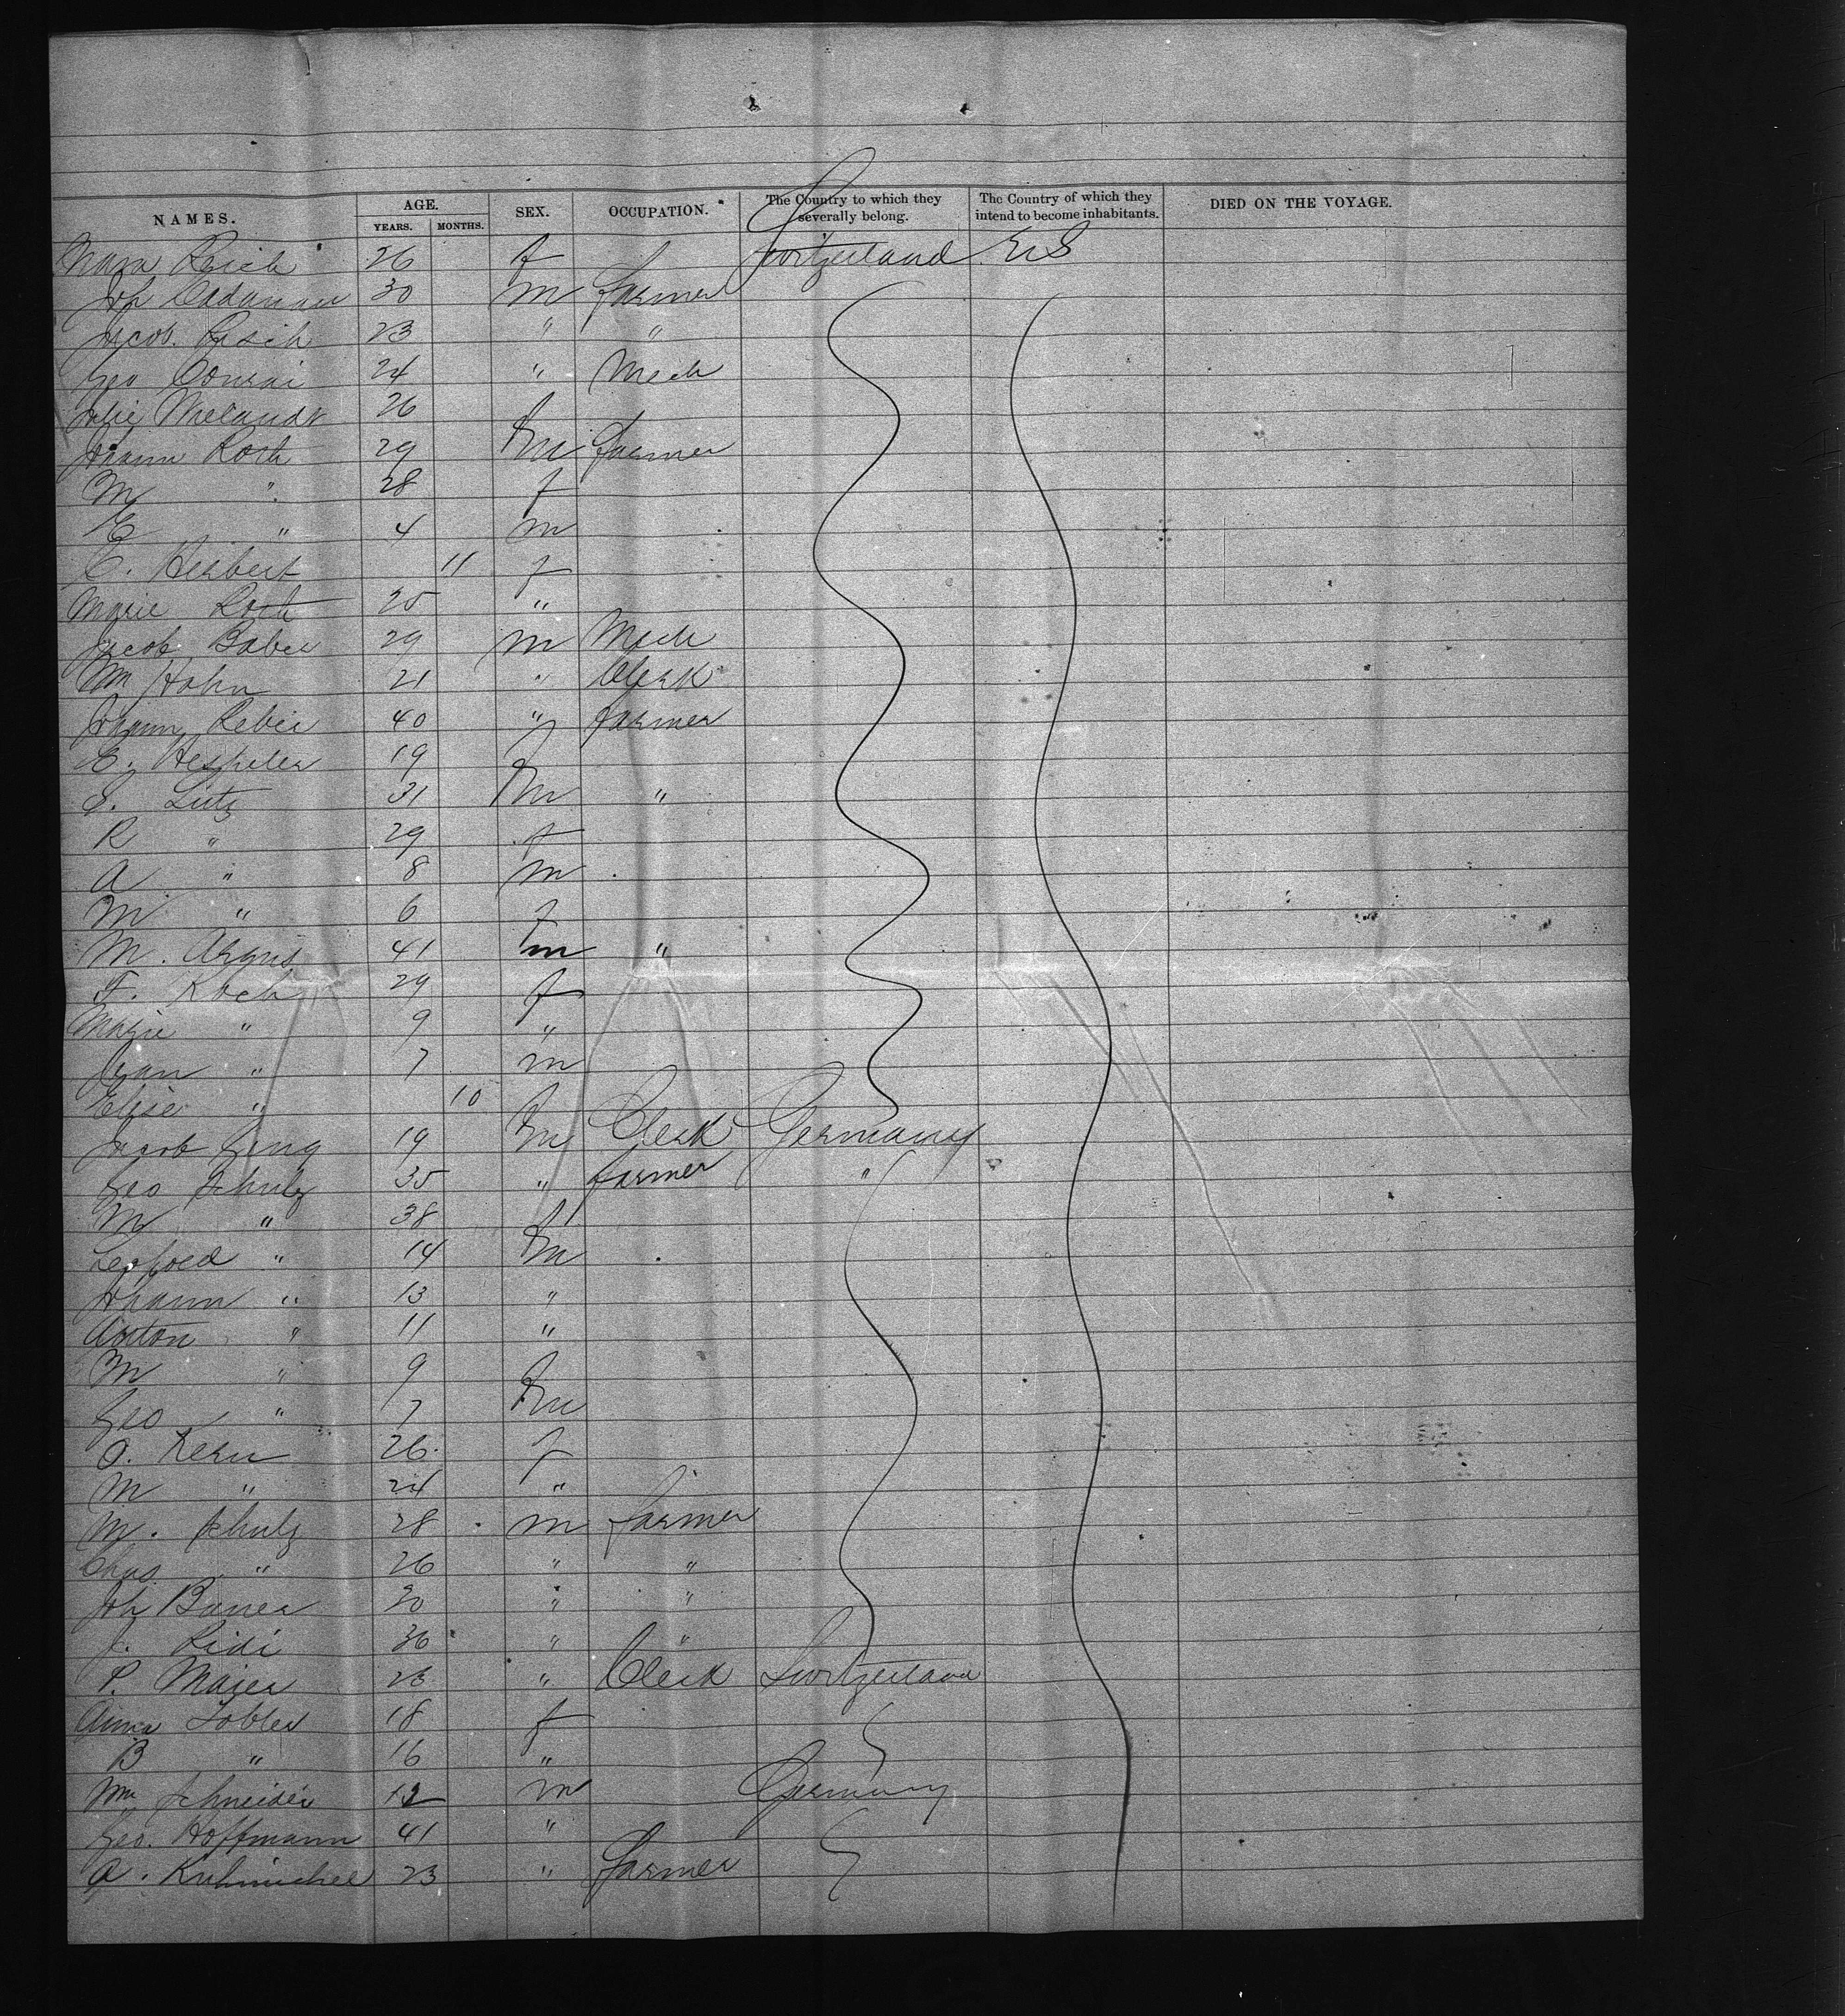 NAMES. AGE. YEARS. MONTHS. SEX. OCCUPATION. The Country to which they severally belong. The Country of which they intend to become inhabitants. DIED ON THE VOYAGE.
Reich 26 f Switzerland US
Joh 30 m farmer
Jacob 23 " "
Geo 24 " Mech
26
Johann Roth 29 m farmer
M " 28 f
E " 4 m
C. Herbert 11 f
Marie Roth 25 "
Jacob Baber 29 m Mech
Wm Hahn 21 " Clerk
Johann Reber 40 " farmer
E. 19 f
S. Lutz 31 m "
R " 29 f
A " 8 m
M " 6 f
M. Argus 41 m "
F. Koch 29 f
Marie " 9 "
Jean " 7 m
Elise " 10 f
Jacob 19 m Clerk Germany
Geo Schulz 35 " farmer "
M " 38 f
Leopold " 14 m
Johann " 13 "
Anton " 11 "
M " 9 f
Geo " 7 m
O. Kern 26 f
M " 24 "
M. Schulz 28 m farmer
Chas " 26 " "
Joh 30 " "
J. Ridi 36 " "
P. Maier 23 " Clerk Switzerland
Anna Tobler 18 f
B " 16 "
Wm Schneider 12 m Germany
Geo. Hoffmann 41 "
A. 23 " farmer